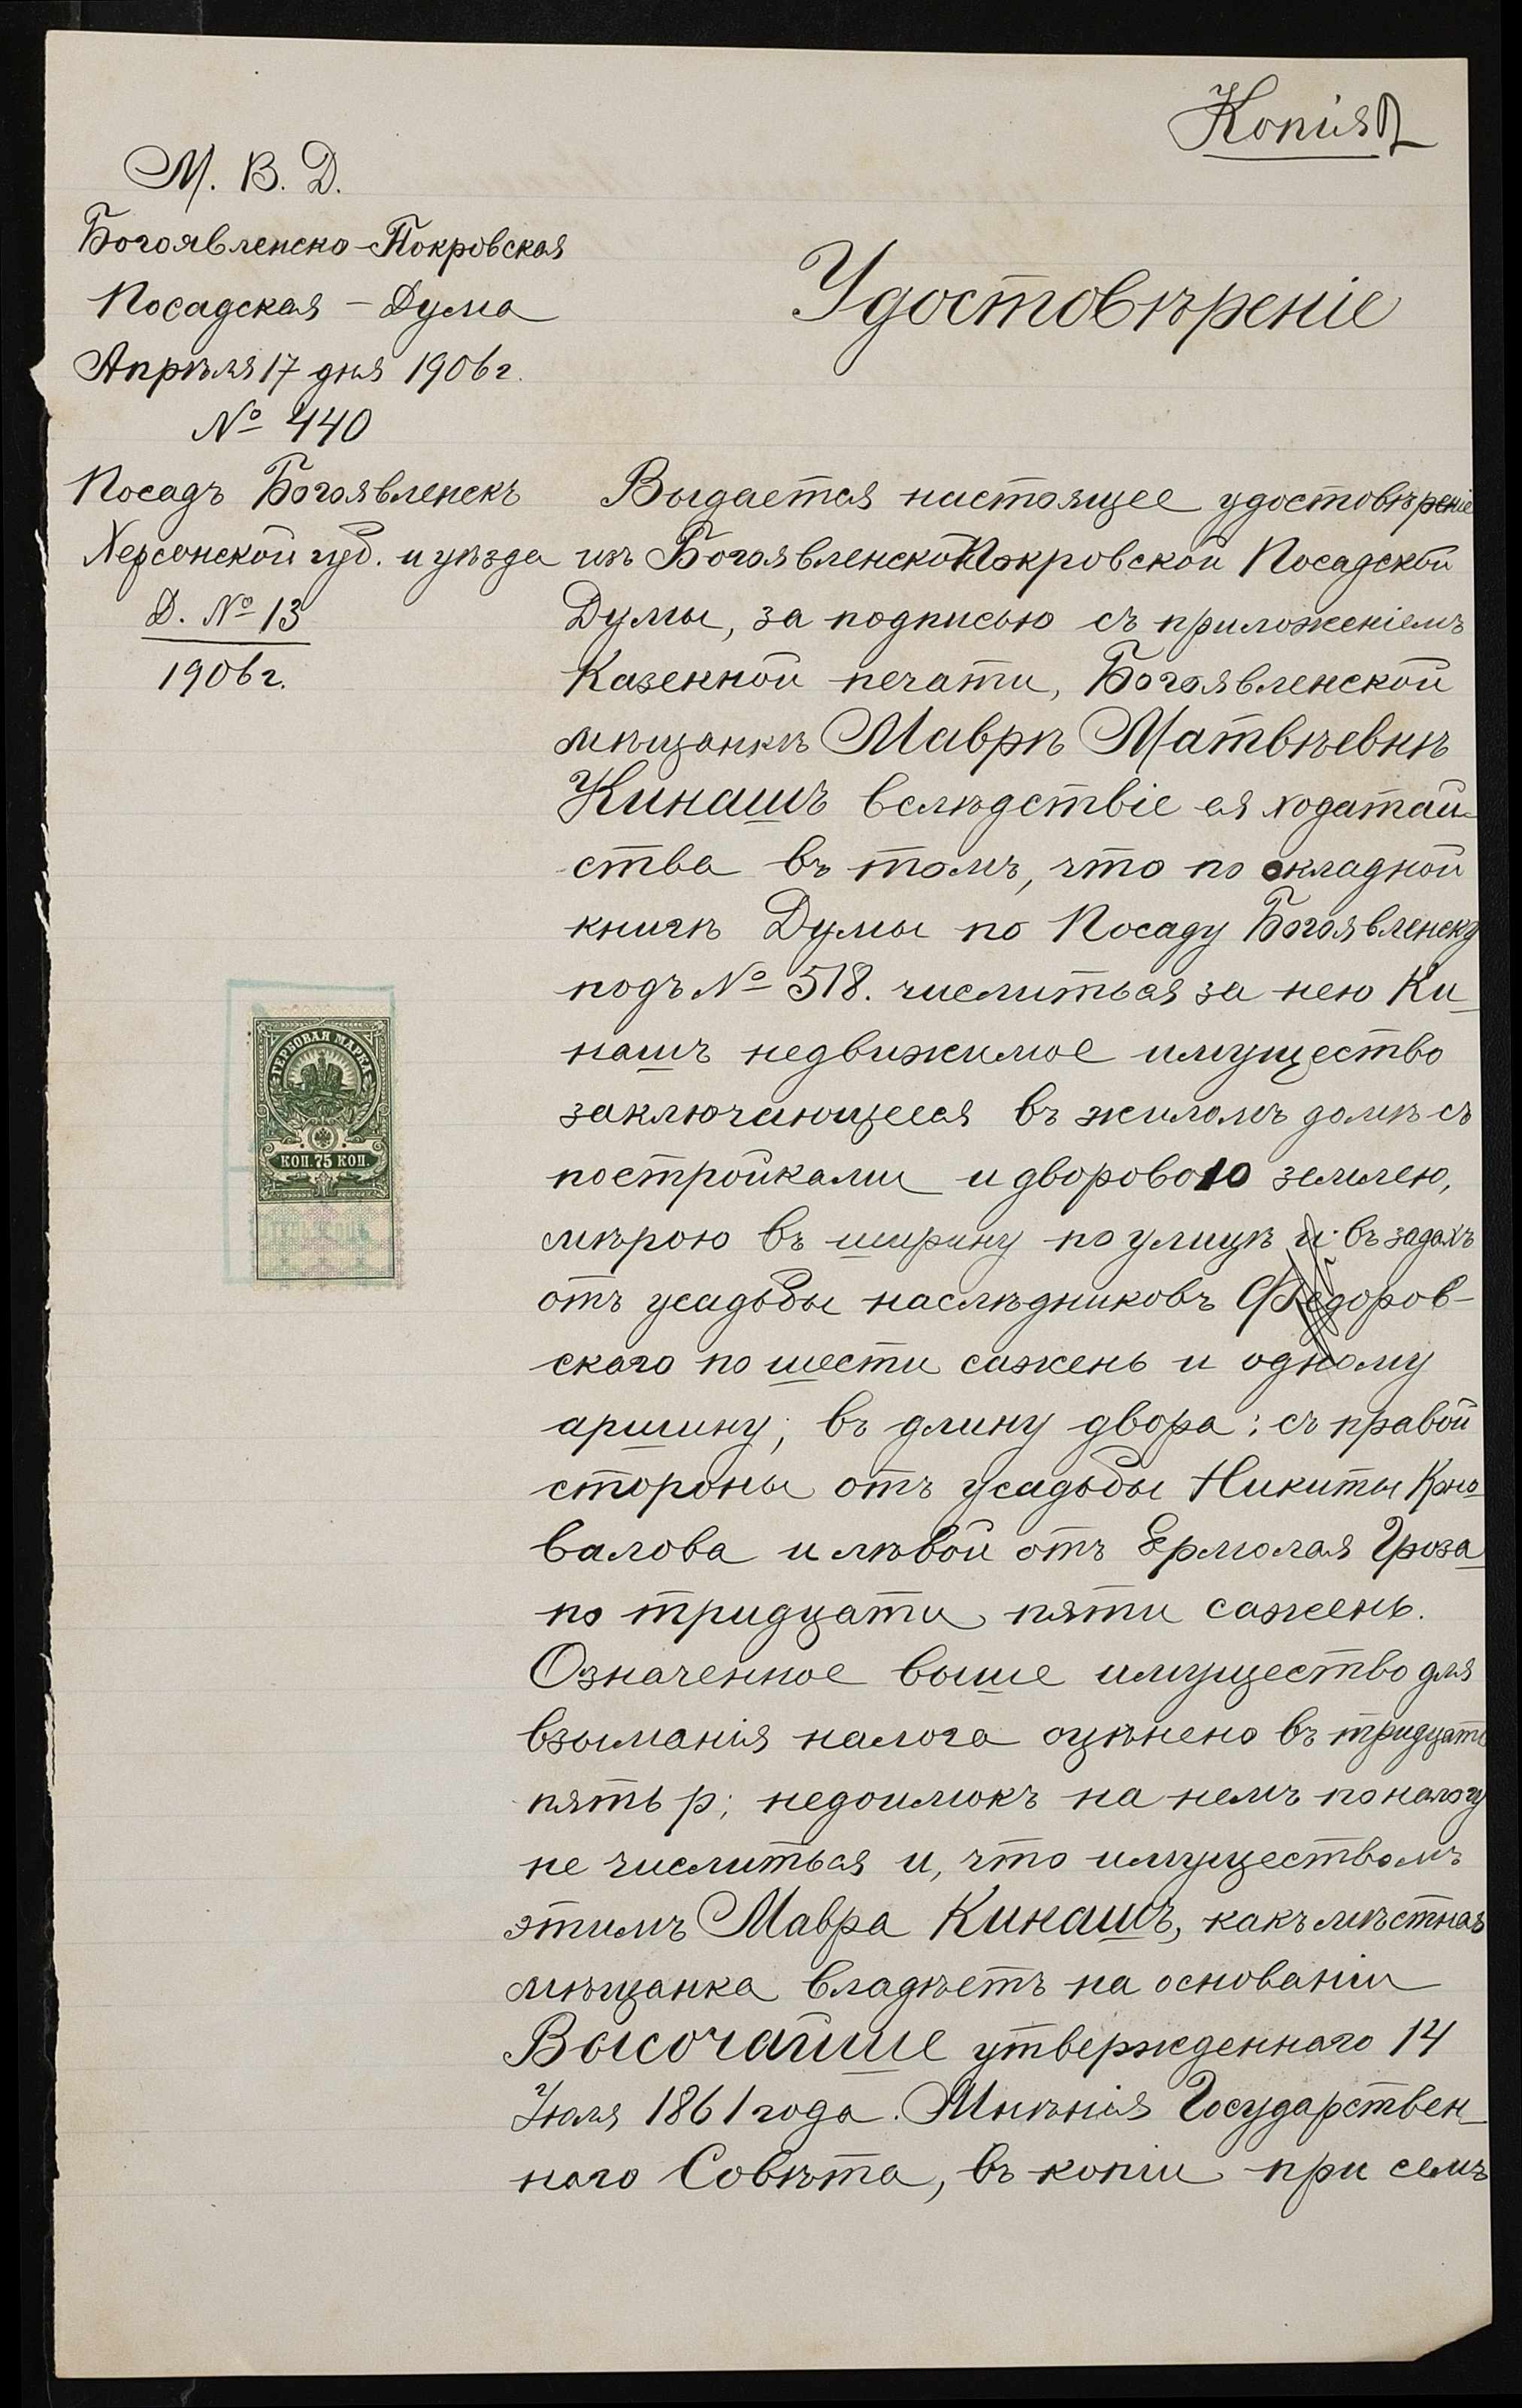 Копія
М. В. Д.
Богоявленско-Покровская
Посадская - Дума
Апрѣля 17 дня 1906 г.
№ 440
Посадъ Богоявленскъ
Херсонской губ. и уѣзда
Д. № 13
1906 г.
Удостовѣреніе
Выдается настоящее удостовѣреніе
изъ Богоявленско Покровской Посадской
Думы, за подписью съ приложеніемъ
Казенной печати, Богоявленской
мѣщанкѣ Маврѣ Матвѣевнѣ
Кинашъ вслѣдствіе ея ходатай-
ства въ томъ, что по окладной
книгѣ Думы по Посаду Богоявленску
подъ № 518. числиться за нею Ки-
нашъ недвижимое имущество
заключающееся въ жиломъ домѣ съ
постройками и дворовою землею,
мѣрою въ ширину по улицѣ и въ задахъ
отъ усадьбы наслѣдниковъ Федоров-
скаго по шести сажень и одному
аршину; въ длину двора: съ правой
стороны отъ усадьбы Никиты Коно-
валова и лѣвой отъ Ермолая Гроза
по тридцати пяти сажень.
Означенное выше имущество для
взыманія налога оцѣнено въ тридцать
пять р; недоимокъ на немъ по налогу
не числиться и, что имуществомъ
этимъ Мавра Кинашъ, какъ мѣстная
мѣщанка владѣетъ на основаніи
Высочайше утвержденнаго 14
Іюля 1861 года. Мнѣнія Государствен-
наго Совѣта, въ копіи при семъ
ГЕРБОВАЯ МАРКА
КОП. 75 КОП.